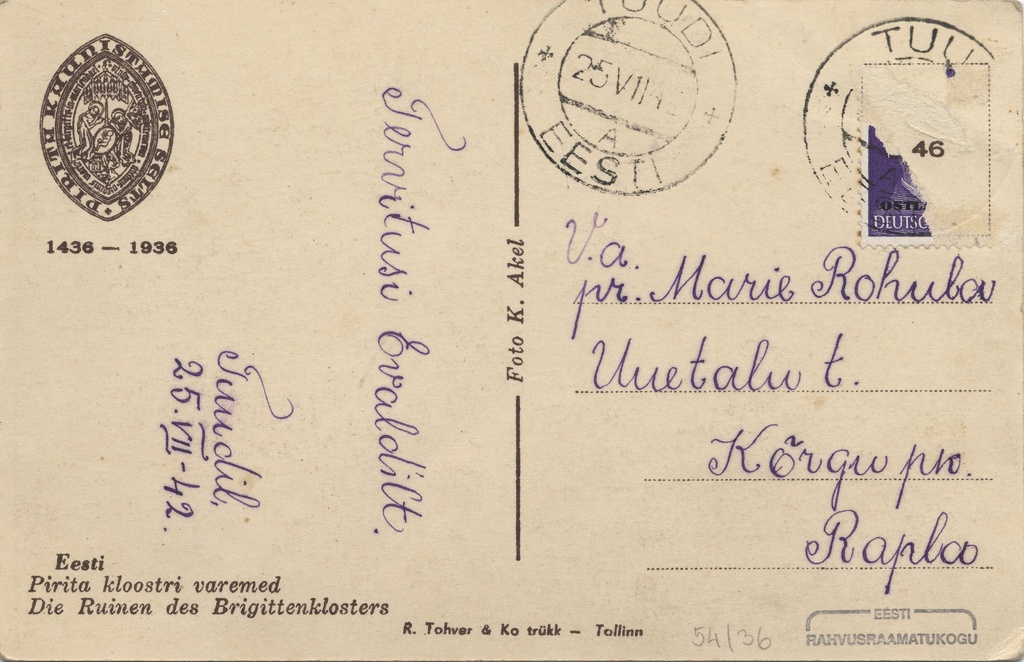 PIRITA KAUNISTAMISE SELTS
1436 — 1936
Tervitusi Evaldilt.
Tuudil,
25.VII-42.
Eesti
Pirita kloostri varemed
Die Ruinen des Brigittenklosters
Foto K. Akel
R. Tohver & Ko trükk — Tallinn
TUUDI
25 VII 4
A
EESTI
TUU
46
OSTL
DEUTSC
V.a.
pr. Marie Rohuba
Uuetalu t.
Kõrgu pk.
Rapla
54/36
EESTI
RAHVUSRAAMATUKOGU